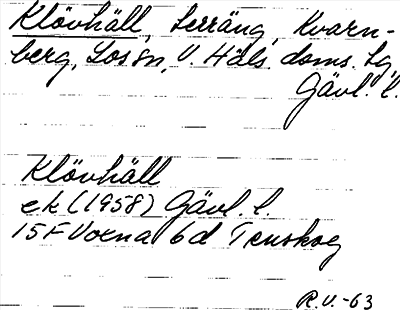 Klövhäll, Terräng, Kvarn-
berg, Los sn, V. Häls. doms. lg,
Gävl. l.
Klövhäll
ek (1958) Gävl. l.
15F Voxna 6d Tenskog
R.V.-63